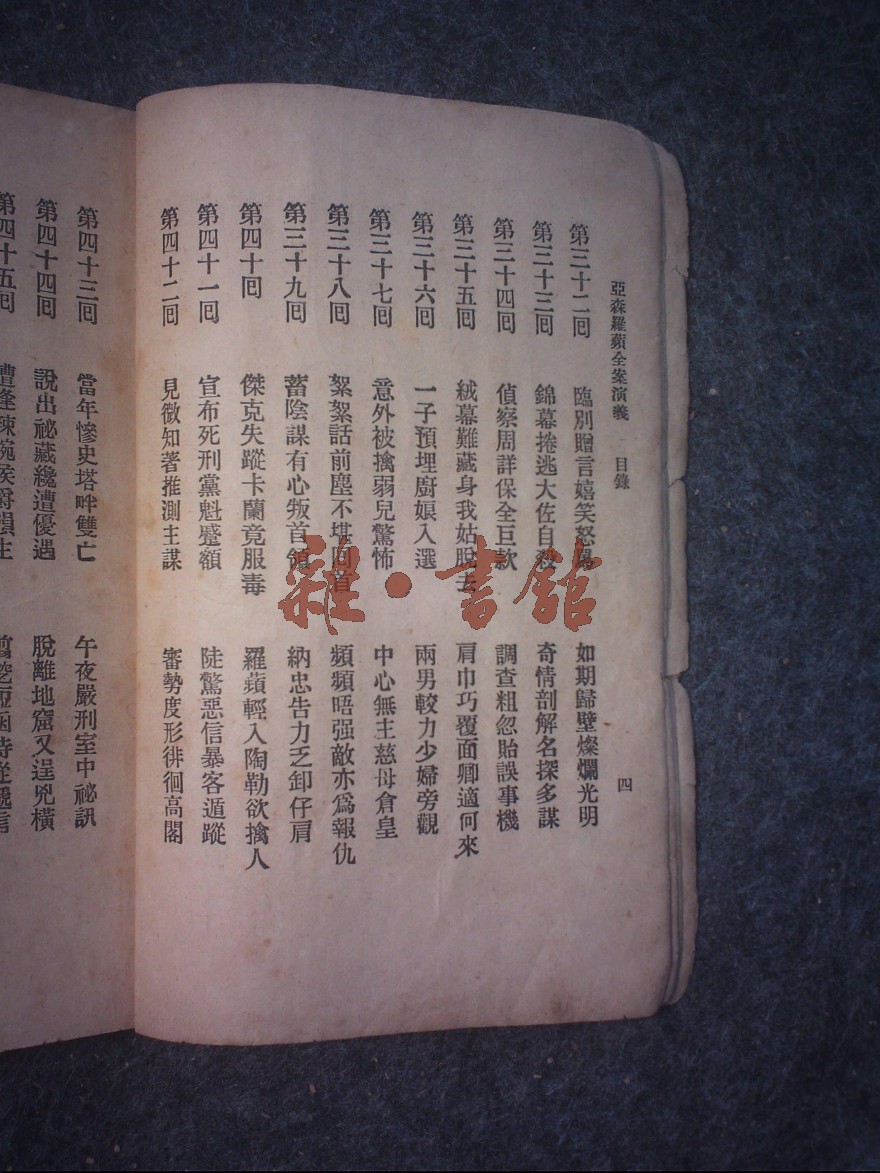 亞森羅蘋全案演義　目錄　四
第三十二回　臨別贈言嬉笑怒　如期歸璧燦爛光明
第三十三回　錦幕捲逃大佐自殺　奇情剖解名探多謀
第三十四回　偵察周詳保全巨款　調查粗忽貽誤事機
第三十五回　絨幕難藏身我姑脫去　肩巾巧覆面卿適何來
第三十六回　一子預埋廚娘入選　兩男較力少婦旁觀
第三十七回　意外被擒弱兒驚怖　中心無主慈母倉皇
第三十八回　絮絮話前塵不堪回首　頻頻晤强敵亦爲報仇
第三十九回　蓄陰謀有心叛首領　納忠告力乏卸仔肩
第四十回　傑克失蹤卡蘭竟服毒　羅蘋輕入陶勒欲擒人
第四十一回　宣布死刑黨魁蹙額　陡驚惡信暴客遁蹤
第四十二回　見微知著推測主謀　審勢度形徘徊高閣
第四十三回　當年慘史塔畔雙亡　午夜嚴刑室中祕訊
第四十四回　說出祕藏纔遭優遇　脫離地窟又逞兇橫
第四十五回
雜·書館